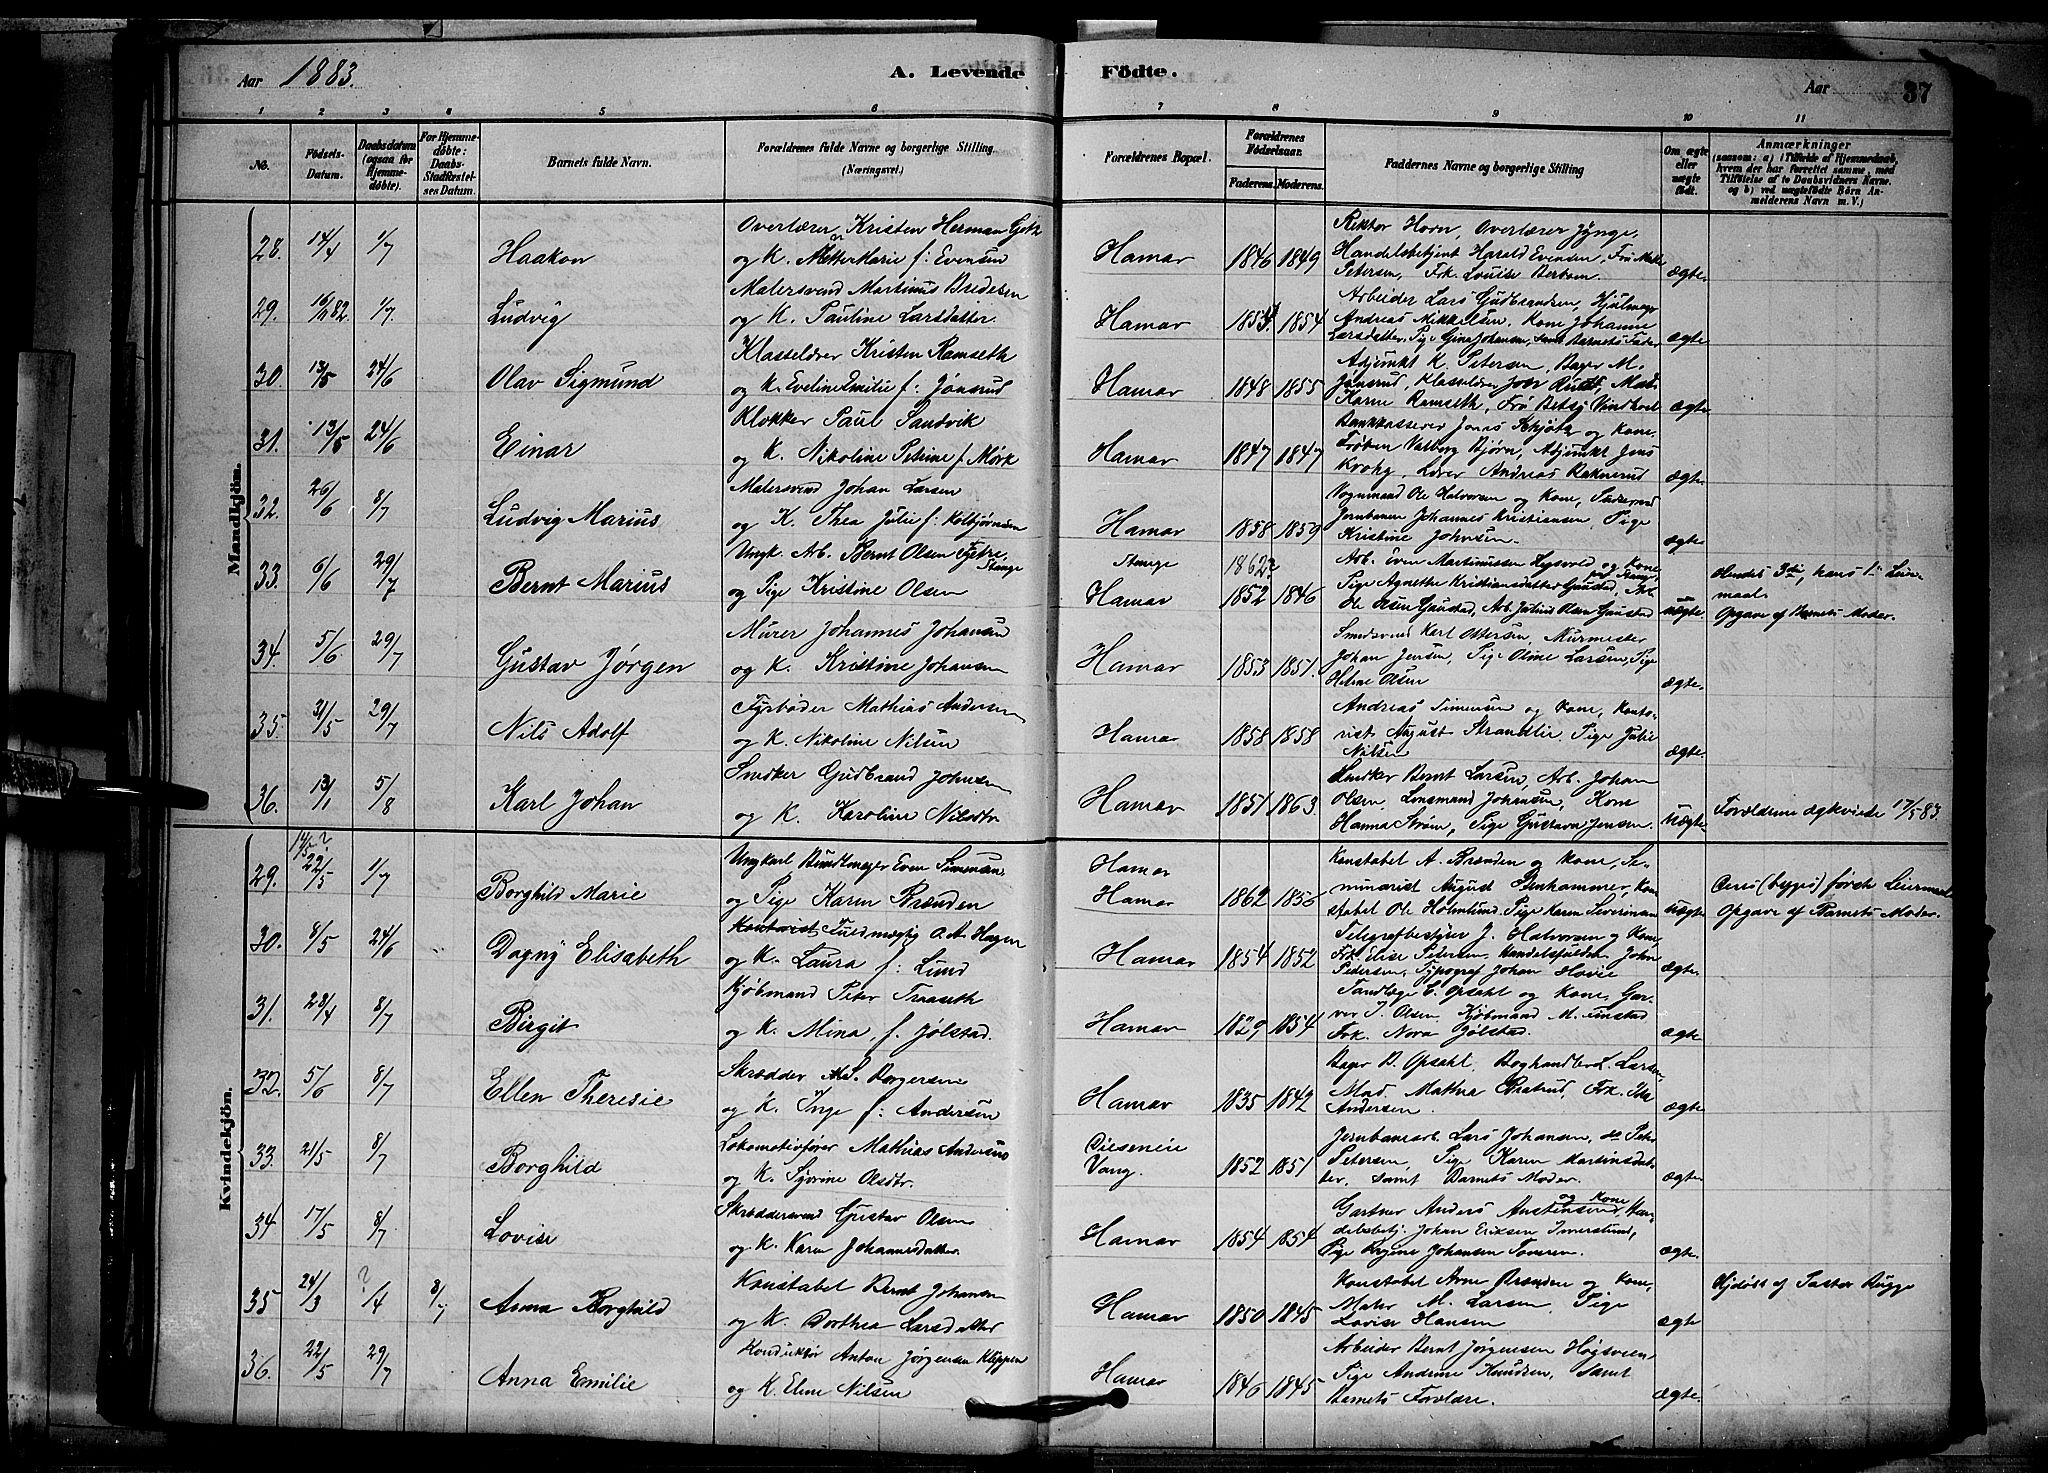 Aar 1883. A. Levende Födte. Aar 37
1 2 3 4 5 6 7 8 9 10 11
No. Födsels-Datum. Daabsdatum (ogsaa for Hjemmedøbte). For Hjemmedøbte: Daabs-Stadfæstelses Datum. Barnets fulde Navn. Forældrenes fulde Navne og borgerlige Stilling (Næringsvei.) Forældrenes Bopæl. Forældrenes Födselsaar. Faderens. Moderens. Faddernes Navne og borgerlige Stilling Om ægte eller uægte födt. Anmærkninger (saasom: a) i Tilfælde af Hjemmedaab, hvem der har forrettet samme, med Tilföielse af to Daabsvidners Navne. og b) ved uægtefødte Börn Anmelderens Navn m. V.)
Mandkjön.
28. 14/4 1/7 Haakon Overlærer Kristen Herman
og K. Mette Marie f: Evensen Hamar 1846 1849 Rektor Horn, Overlærer Jynge,
Handelsbetjent Harald Evensen, Fru Mette
Petersen, Frk. Louise Berksen ægte
29. 16/ 82. 1/7. Ludvig Malersvend Martinus Bredesen
og K. Pauline Larsdatter. Hamar 1854 Arbeider Lars Gudbrandsen, Hjulmager
Andreas Mikkelsen, Kone Johanne
Larsdatter, Pige Gina Johansen, samt Barnets Fader ægte
30. 13/5 24/6 Olav Sigmund Klasselærer Kristen Ramseth
og K. Eveline Emilie f: Jønsrud Hamar 1848 1855 Adjunkt K. Petersen, Bager M.
Jønsrud, Klasselærer
Karen Ramseth, Frø Betsy ægte
31. 13/5 24/6 Einar Klokker Paul Sandvik
og K. Nikoline Petrine f. Mørk Hamar 1847 1847 Bankkasserer Jens og Kone,
Frøken Valborg Bjørn, Adjunkt Jens
Krohg, Lærer Andreas ægte
32. 26/6 8/7 Ludvig Marius Malersvend Johan Larsen
og K. Thea Julie f: Kolbjørnsen Hamar 1858 1859 Vognmand Ole Halvorsen og Kone,
Jernbanen Johannes Kristiansen, Pige
Kristine Johnsen. ægte
33. 6/6 29/7 Bernt Marius Ungk. Arb. Bernt Olsen Stange
og Pige Kristine Olsen Stange
Hamar 1862?
1852 1846 Arb. Even Martinussen og Kone
Pige Agnethe Kristiansdatter Arb.
Ole Olsen Arb. Julius Olsen uægte Hendes 3die, hans 1ste Leiermaal.
Opgave af Barnets Moder.
34. 5/6 29/7 Gustav Jørgen Murer Johannes Johansen
og K. Kristine Johansen Hamar 1853 1851. Smedsvend Karl Ottersen, Murmester
Johan Jensen, Pige Oline Larsen, Pige
Helene Olsen ægte.
35. 31/5 29/7 Nils Adolf Fyrbøder Mathias Andersen
og K. Nikoline Nilsen Hamar 1858 1858 Andreas Simensen og Kone, Kontorist
August Strandlie, Pige Julie
Nilsen ægte
36. 13/1 5/8 Karl Johan Snedker Gudbrand Johnsen
og K. Karoline Nilsdtr Hamar 1851 1863. Snedker Bernt Larsen, Arb. Johan
Olsen, Lensmand Johansen, Kone
Hanna Strøm, Pige Gustava Jensen. uægte Forældrene ægteviede 17/5 83.
Kvindekjön.
29. 14/5? 22/5 1/7 Borghild Marie Ungkarl Buntmager Even Simensen
og Pige Karen Brænden Hamar
Hamar 1862 1856 Konstabel A. Brænden og Kone, Seminarist
August Stenhammer, Konstabel
Ole Holmlund, Pige Karen Severinsen uægte (begges) første Leiermaal
Opgave af Barnets Moder.
30. 8/5 24/6 Dagny Elisabeth Fuldmægtig O. A. Hagen
og K. Laura f: Lund Hamar 1854 1852 Telegrafbestyrer J. Halvorsen og Kone,
Frk. Elise Petersen, John
Pedersen, Typograf Johan Hovie ægte
31. 28/4 8/7 Birgit Kjøbmand Peter Traaseth
og K. Mina, f. Jølstad. Hamar 1829 1854 Tandlæge E. Opsahl og Kone, Garver
J. Olsen, Kjøbmand M.
Frk. Nora Jølstad. ægte
32. 5/6 8/7 Ellen Theresie Skrædder Borgersen
og K. Inge f: Andersen Hamar 1835 1842 Bager B. Opsahl, Boghandler L. Larsen,
Mad. Mathea Frk. Ida
Andersen. ægte
33. 21/5 8/7 Borghild Lokomotivfører Mathias Andersen
og K. Syverine Olsdtr. Disenveie
Vang. 1852 1851 Jernbanearb. Lars Johansen, do Peter
Petersen, Pige Karen Martinsdatter,
samt Barnets Moder. ægte
34 17/5 8/7 Lovise Skræddersvend Gustav Olsen
og K. Karen Johannesdatter. Hamar 1854 1854 Gartner Anders Austensen og Kone, Handelsbetj.
Johan Eriksen Imerslund,
Pige Johansen ægte.
35 24/3 ? /4 8/7 Anna Borghild Konstabel Bernt Johansen
og K. Dorthea Larsdatter Hamar 1850 1845 Konstabel Arne Brænden og Kone,
Maler M. Larsen, Pige
Lovise Hansen ægte Hjdøbt af Pastor Bugge
36. 22/5 29/7 Anna Emilie Konduktør Anton Jørgensen Kleppen
og K. Eline Nilsen Hamar 1846 1845 Arbeider Bernt Jørgensen Høgsveen,
Pige Andrine Knudsen, samt
Barnets Forældre. ægte.